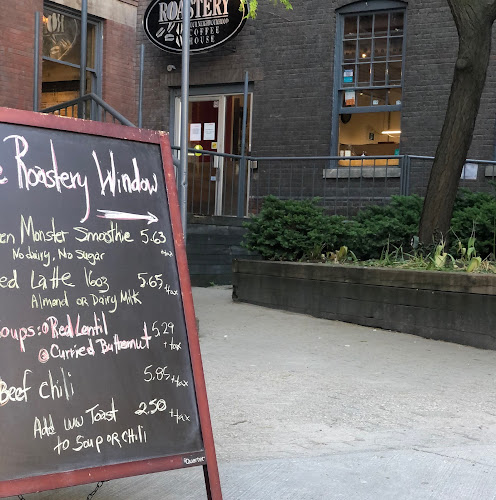 ROASTERY
COFFEE
HOUSE
Roastery Window
Monster Smoothie 5.63
No dairy, No Sugar +tax
Latte 16oz 5.65
Almond or Dairy Milk +tax
oups: Red Lentil 5.29
Curried Butternut +tax
Beef Chili 5.85 +tax
Add ww Toast 2.50 +tax
to Soup or Chili